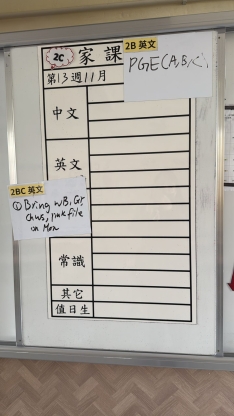 2C 家課
第13週11月
2B 英文
PGE(A,B,C)
中文
英文
2BC 英文
① Bring WB, GE
on Mon
常識
其它
值日生